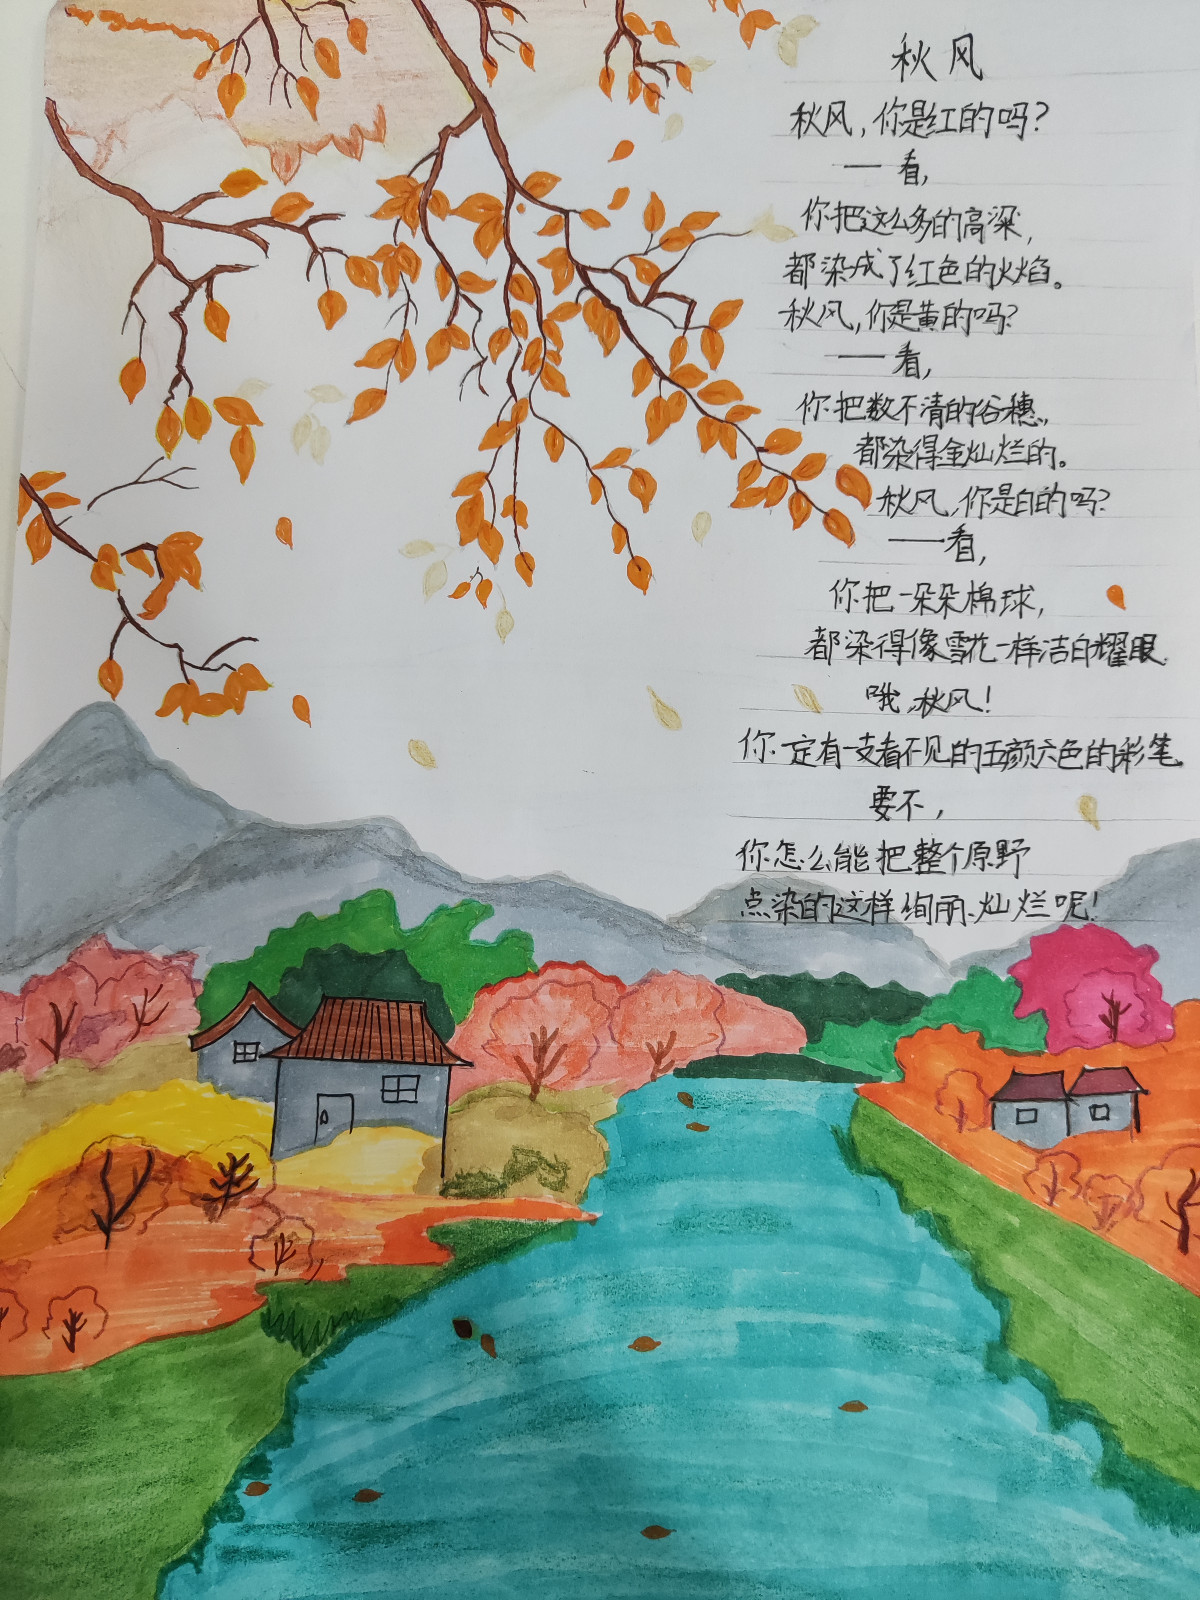 秋风
秋风,你是红的吗?
——看,
你把这么多的高粱,
都染成了红色的火焰。
秋风,你是黄的吗?
——看,
你把数不清的谷穗,
都染得金灿烂的。
秋风,你是白的吗?
——看,
你把一朵朵棉球,
都染得像雪花一样洁白耀眼.
哦,秋风!
你一定有一支看不见的五颜六色的彩笔.
要不,
你怎么能把整个原野
点染的这样绚丽、灿烂呢!